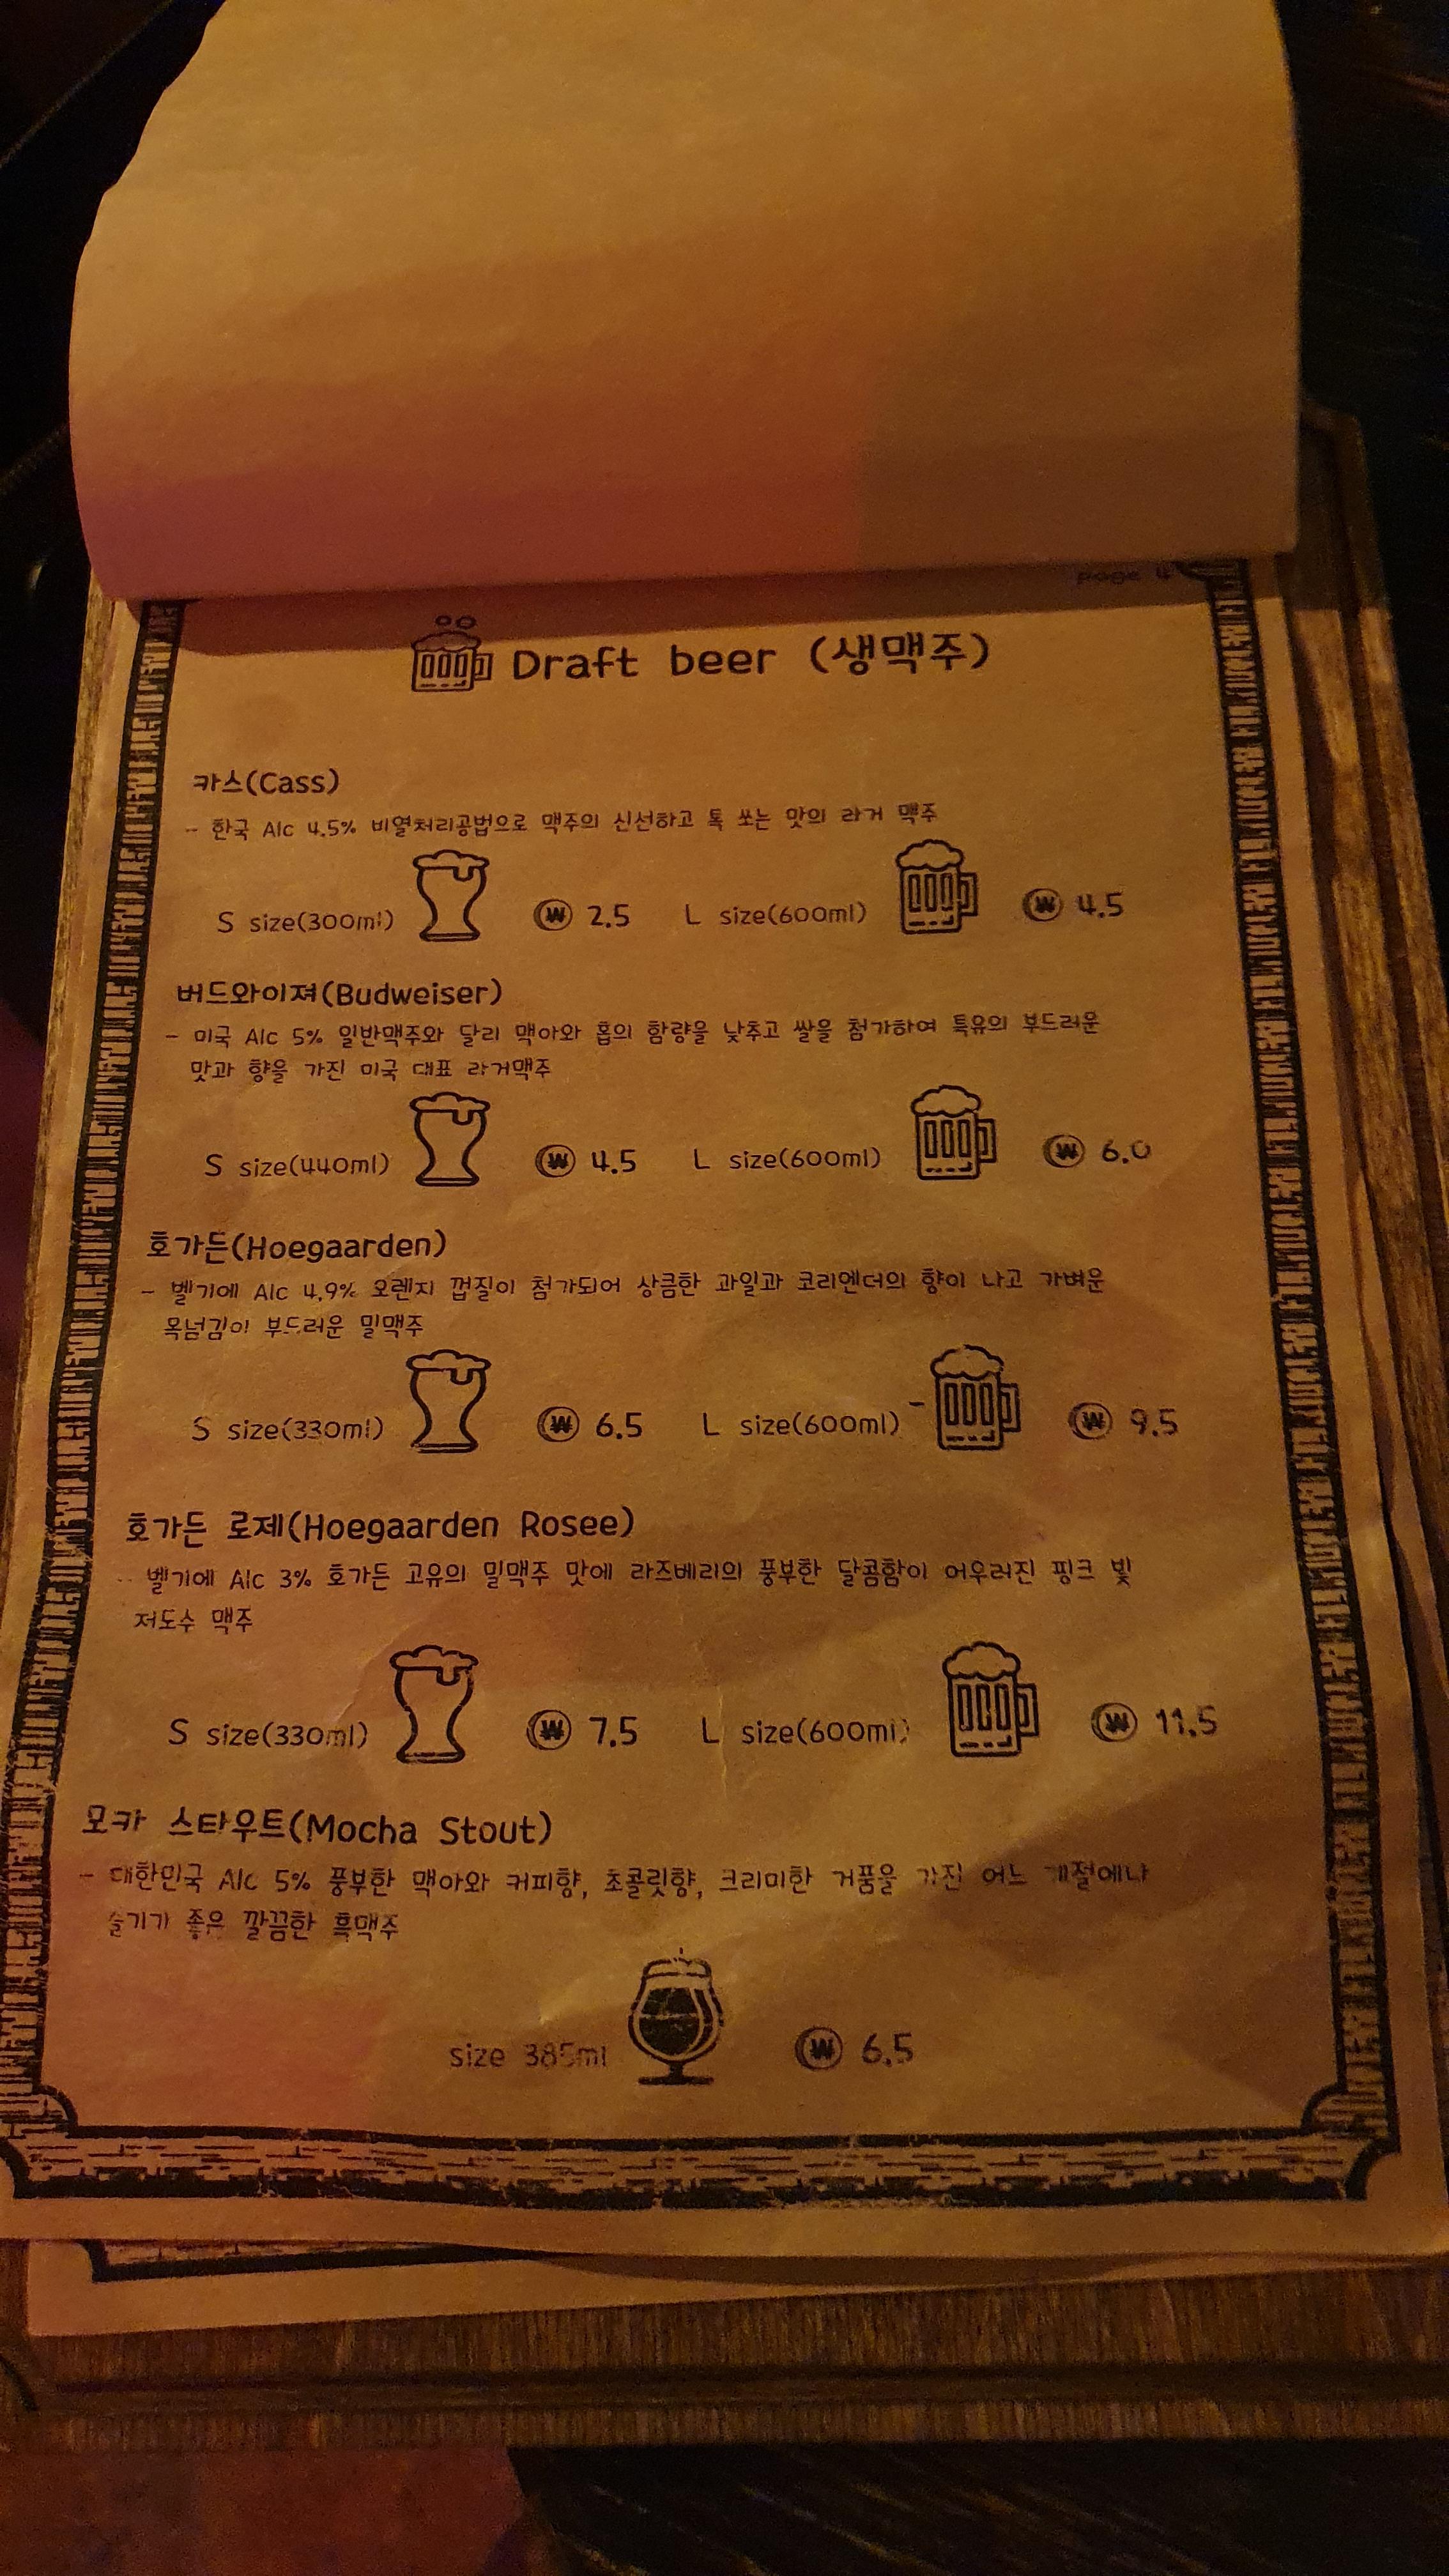 page 4
Draft beer (생맥주)
카스(Cass)
- 한국 Alc 4.5% 비열처리공법으로 맥주의 신선하고 톡 쏘는 맛의 라거 맥주
S size(300ml) ₩ 2.5 L size(600ml) ₩ 4.5
버드와이져(Budweiser)
- 미국 Alc 5% 일반맥주와 달리 맥아와 홉의 함량을 낮추고 쌀을 첨가하여 특유의 부드러운
맛과 향을 가진 미국 대표 라거맥주
S size(440ml) ₩ 4.5 L size(600ml) ₩ 6.0
호가든(Hoegaarden)
- 벨기에 Alc 4.9% 오렌지 껍질이 첨가되어 상큼한 과일과 코리엔더의 향이 나고 가벼운
목넘김이 부드러운 밀맥주
S size(330ml) ₩ 6.5 L size(600ml) ₩ 9.5
호가든 로제(Hoegaarden Rosee)
- 벨기에 Alc 3% 호가든 고유의 밀맥주 맛에 라즈베리의 풍부한 달콤함이 어우러진 핑크 빛
저도수 맥주
S size(330ml) ₩ 7.5 L size(600ml) ₩ 11.5
모카 스타우트(Mocha Stout)
- 대한민국 Alc 5% 풍부한 맥아와 커피향, 초콜릿향, 크리미한 거품을 가진 어느 계절에나
즐기기 좋은 깔끔한 흑맥주
size 385ml ₩ 6.5